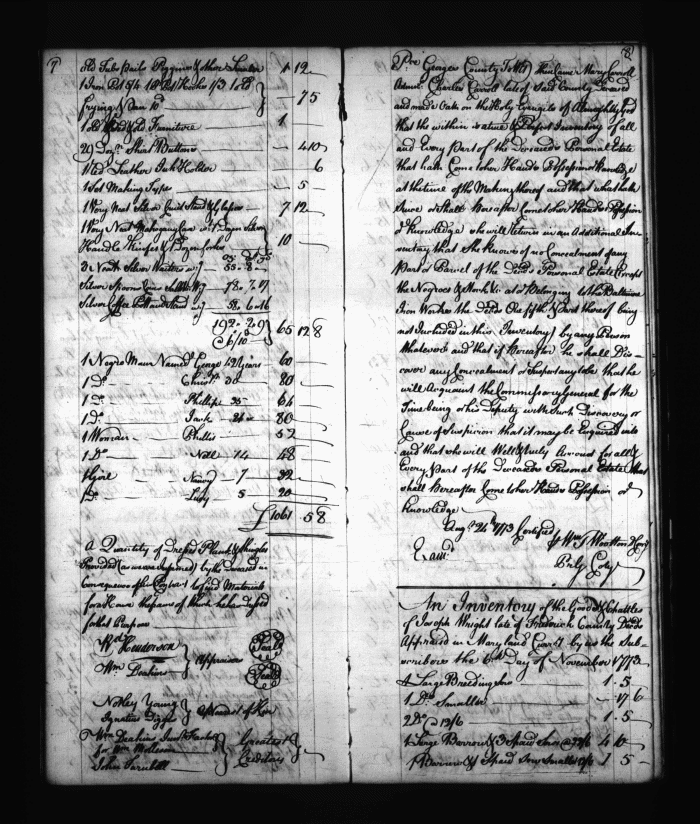 7
Old Tubs Pails Piggins & other Lumber 1 12
1 Iron Pot 5/4 1 Pot Hooks 1/3 1 old
frying Pan 10d — 7 5
1 old Bed & Furniture 1
29 Doz.n Shirt Buttons 4 10
1 Red Leather Ink Holder 6
1 Set Making Type 5
1 Very Neat Silver Cruit Stand & Glasses 7 12
1 Very Neat Mahogany Case wt Dozen Silver
Handle Knives & Dozen forks 10
3 Neat Silver Waiters 55 " 8
Silver Spoons 78 " 17
Silver Coffee Pott and Stand 58 " 6 " 16
192 " 29 } 65 12 8
@ 6/10
1 Negro Man Named George 42 Years 60
1 Do Christr 30 80
1 Do Phillip 35 64
1 Do Jack 24 80
1 Woman Phillis 52
1 Do Nell 14 48
1 Girl Nancy 7 32
1 Do Lucy 5 20
£ 1061 5 8
A Quantity of Dressed Plank & Shingles
Provided (as we are Informed) by the Deceased in
Consequence of the to find Materials
for a House the plans of which he had
for that Purpose
Rd Henderson Seal
Wm Deakins } Appraisers Seal
Notley Young
Ignatius Digges }
Wm Deakins Junr Factor
for Wm Molleson } Greatest
John Turnbull Creditors
8
Pr. Georges County To Wit) Then Came Mary Carroll
Admx Charles Carroll late of Said County Deceased
and made Oath on the Holy Evangels of Almighty God
that the within is a true & Perfect Inventory of all
and Every Part of the Deceased's Personal Estate
that hath Come to her Hands Possession or Knowledge
at the time of the Making thereof and that what hath
Since or Shall Hereafter Come to her Hands Possession
or Knowledge she will return in an Additional In-
ventory that She Knows of no Concealment of any
Part or Parcel of the Deceds Personal Estate (Except
the Negroes & Stock &c at & Belonging to the Baltimore
Iron Works the Deceds One fifth Part thereof being
not Included in this Inventory) by any Person
Whatsoever and that if Hereafter he shall Dis-
cover any Concealment or Suspect any to be that he
will Acquaint the Commissary General for the
Time being or his Deputy with Such Discovery or
Cause of Suspicion that it may be Enquired into
and that she will Well & truly Account for all &
Every Part of the Deceaseds Personal Estate that
shall Hereafter Come to her Hands Possession or
Knowledge
Augt 24th 1773 Certified
Pr Wm T. Wootton
Examd
An Inventory of the Goods & Chattles
of Joseph Wright late of Frederick County Decsd
Appraised in Maryland Currcy by us the Sub-
scribers the 6th Day of November 1773
4 Large Breeding Sows 1 " 5
1 Do Smaller — " 17 6
2 Do @ 12/6 1 " 5
4 Large Barrows & 3 Spaid Sows 4 10
1 Barrow & 1 Spaid Sow Smaller 1 5